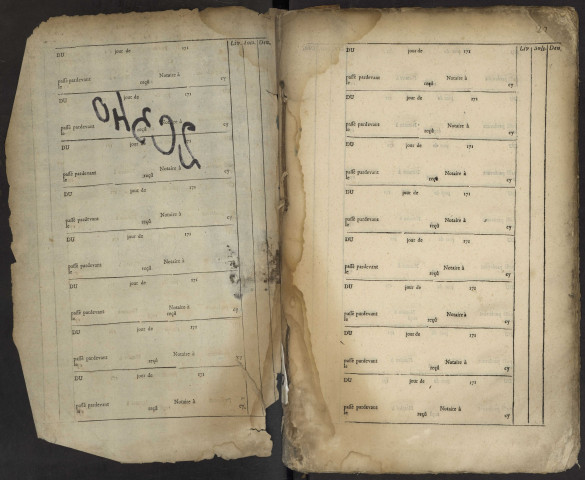 Liv. Sols Den.
DU jour de 171
passé pardevant Notaire à
le reçû cy
DU jour de 171
passé pardevant Notaire à
le reçû cy
DU jour de 171
passé pardevant Notaire à
le reçû cy
DU jour de 171
passé pardevant Notaire à
le reçû cy
DU jour de 171
passé pardevant Notaire à
le reçû cy
DU jour de 171
passé pardevant Notaire à
le reçû cy
DU jour de 171
passé pardevant Notaire à
le reçû cy
DU jour de 171
passé pardevant Notaire à
le reçû cy
Liv. Sols Den.
DU jour de 171
passé pardevant Notaire à
le reçû cy
DU jour de 171
passé pardevant Notaire à
le reçû cy
DU jour de 171
passé pardevant Notaire à
le reçû cy
DU jour de 171
passé pardevant Notaire à
le reçû cy
DU jour de 171
passé pardevant Notaire à
le reçû cy
DU jour de 171
passé pardevant Notaire à
le reçû cy
DU jour de 171
passé pardevant Notaire à
le reçû cy
DU jour de 171
passé pardevant Notaire à
le reçû cy